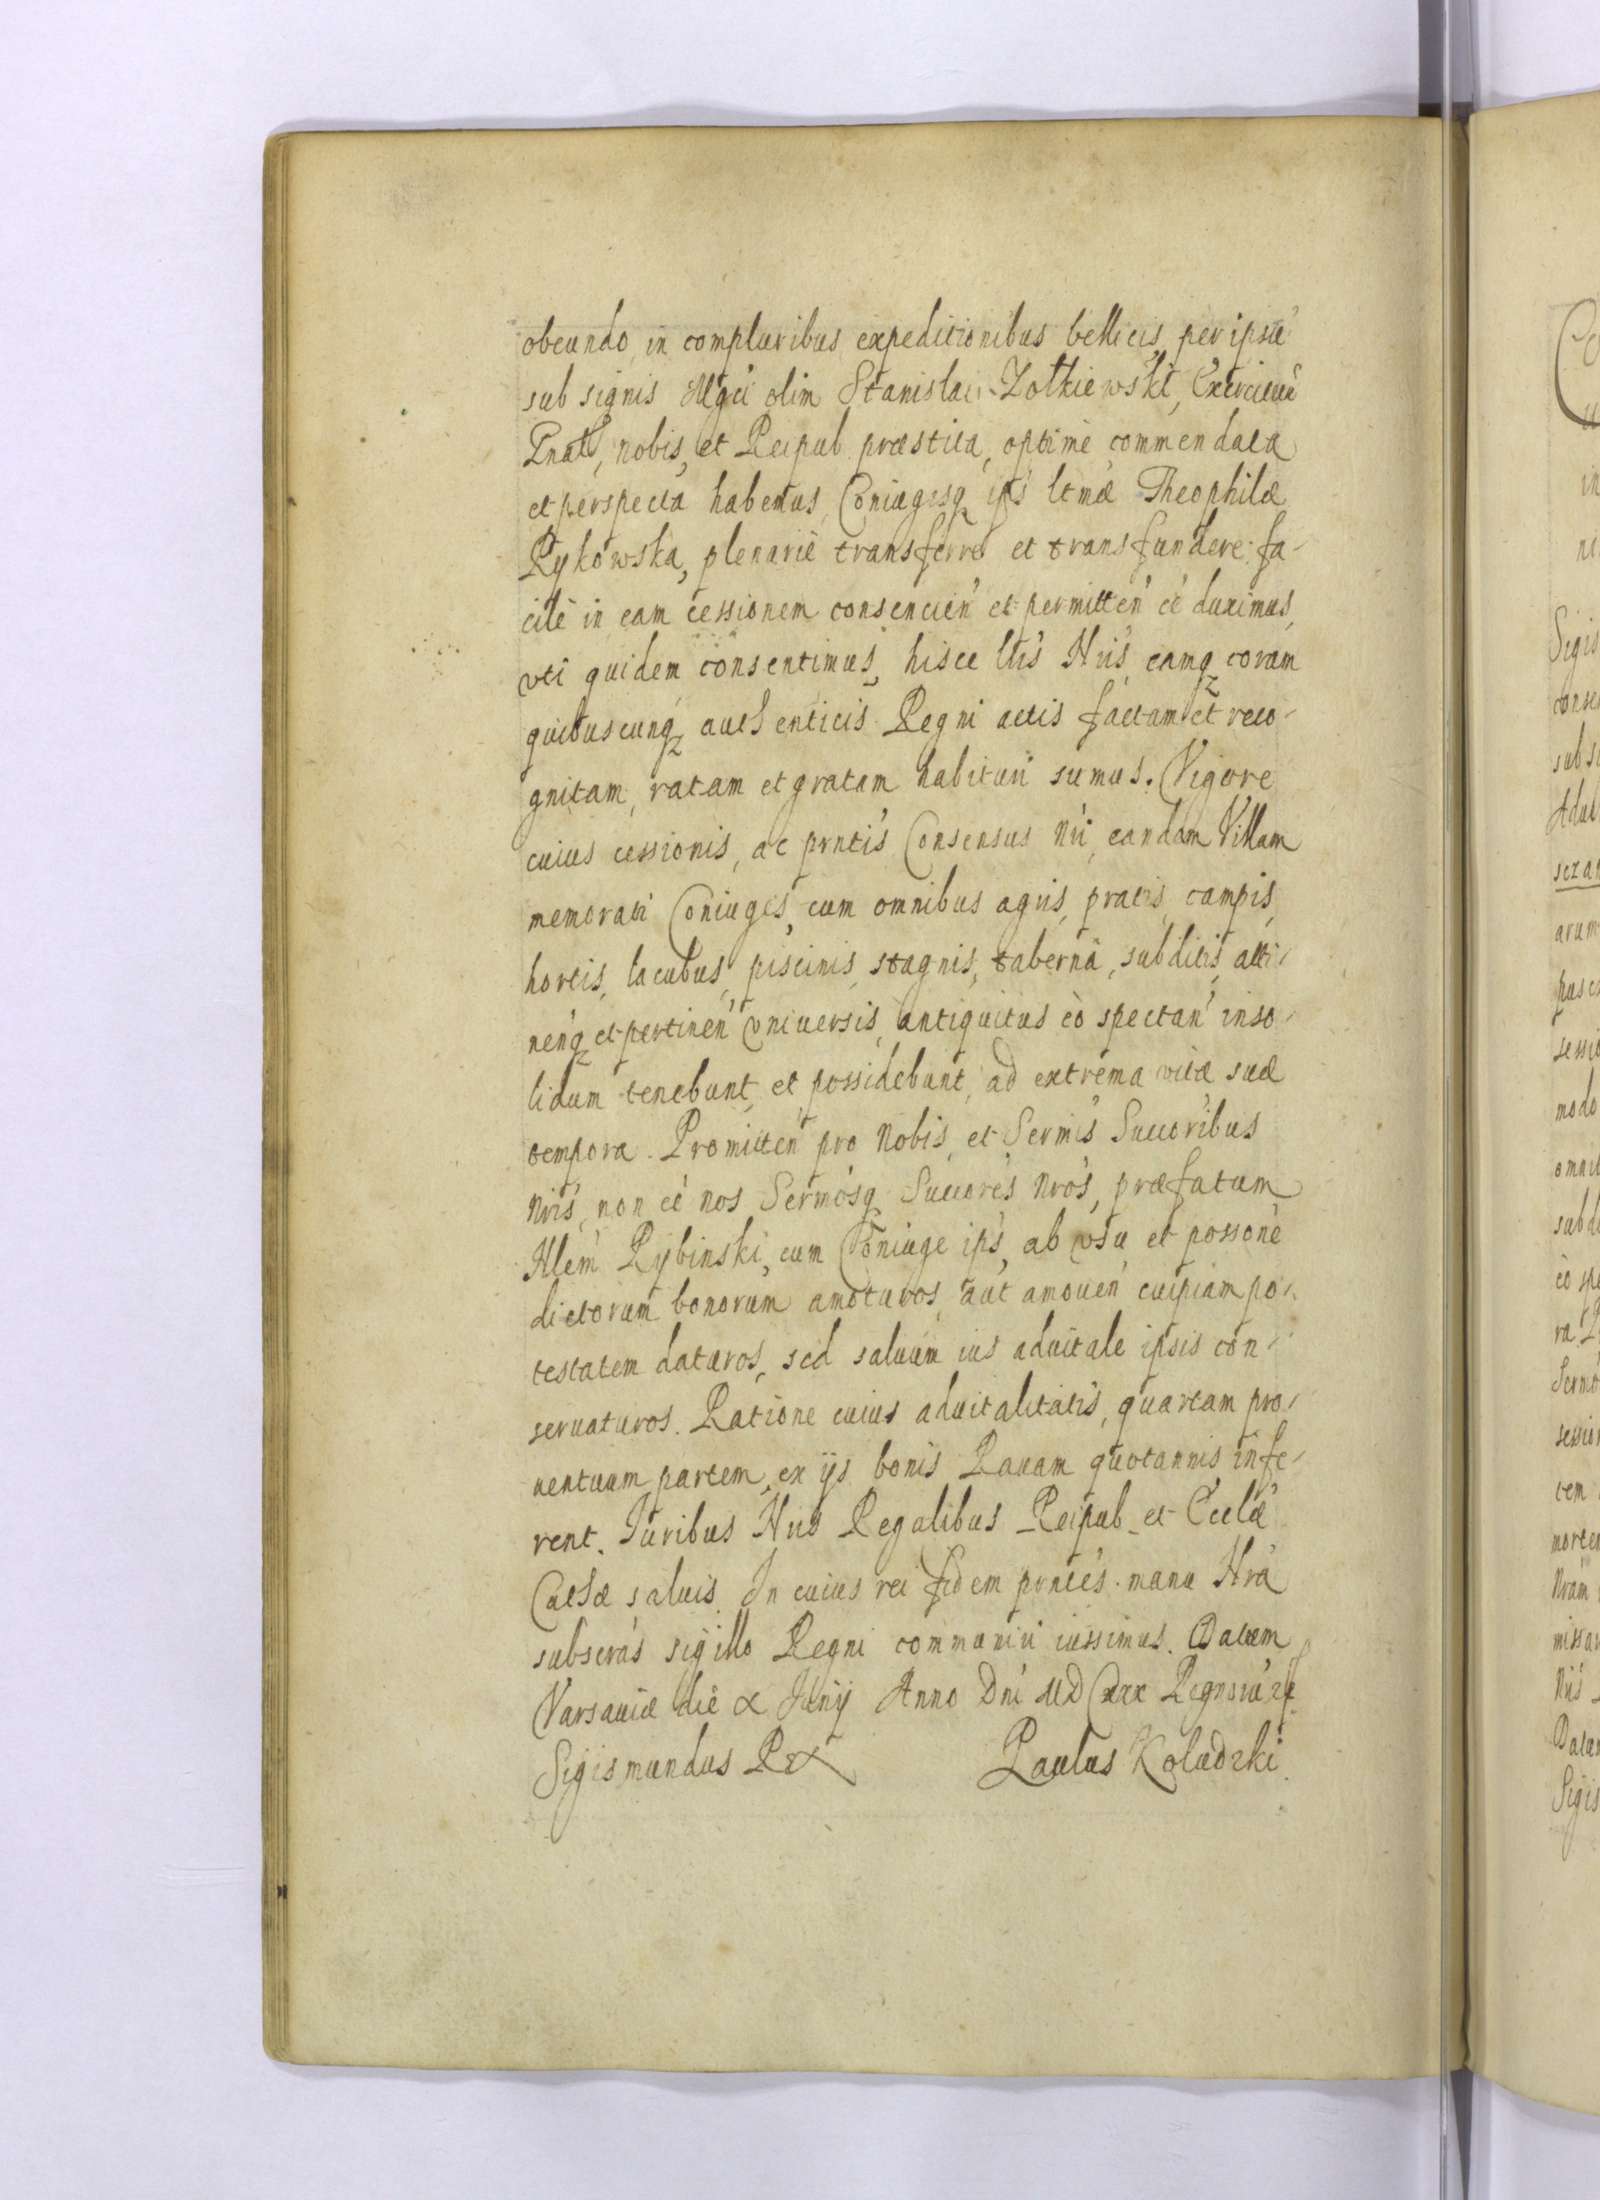 obeundo, in compluribus expeditionibus bellicis, per ipsu͂
sub signis Mgci olim Stanislai Zolkiewski, Exercituu͂
Gnalis, nobis, et Reipub. præstita, optime commendata
et perspecta habemus, Coniugisq ips ltmæ Theophilæ
Rykowska, plenariè transferre et transfundere fa-
cile in eam cessionem consencien̕ et permitten̕ eē duximus,
vti quidem consentimus, hisce lris Nris, eamq coram
quibuscunq authenticis Regni actis factam et reco-
gnitam, ratam et gratam habituri sumus. Vigore
cuius cessionis, ac prntis Consensus Nri, eandam Villam
memorati Coniuges, cum omnibus agris, pratis, campis,
hortis, lacubus, piscinis, stagnis, taberna, subditis, atti-
nenq et pertinen̕ vniuersis, antiquitus eò spectan̕ inso-
lidum tenebunt, et possidebunt, ad extrema vitæ suæ
tempora. Promitten̕ pro Nobis, et Sermis Succoribus
Nris, non eē nos Sermosq Succores Nros, præfatum
Nlem Rybinski, cum Coniuge ips, ab vsu et possone
dictorum bonorum amoturos, aut amouen̕ cuipiam po-
testatem daturos, sed saluum ius aduitale ipsis con-
seruaturos. Ratione cuius aduitalitatis, quartam pro-
uentuum partem, ex ijs bonis Rauam quotannis infe-
rent. Iuribus Nris Regalibus Reipub. et Ecclæ
Cathæ saluis. In cuius rei fidem prntes manu Nra
subscras sigillo Regni communiri iussimus. Datum
Varsauiæ die X Iunij Anno Dni MDCXXX Regnoru͂
Sigismundus Rex Paulus Koludzki